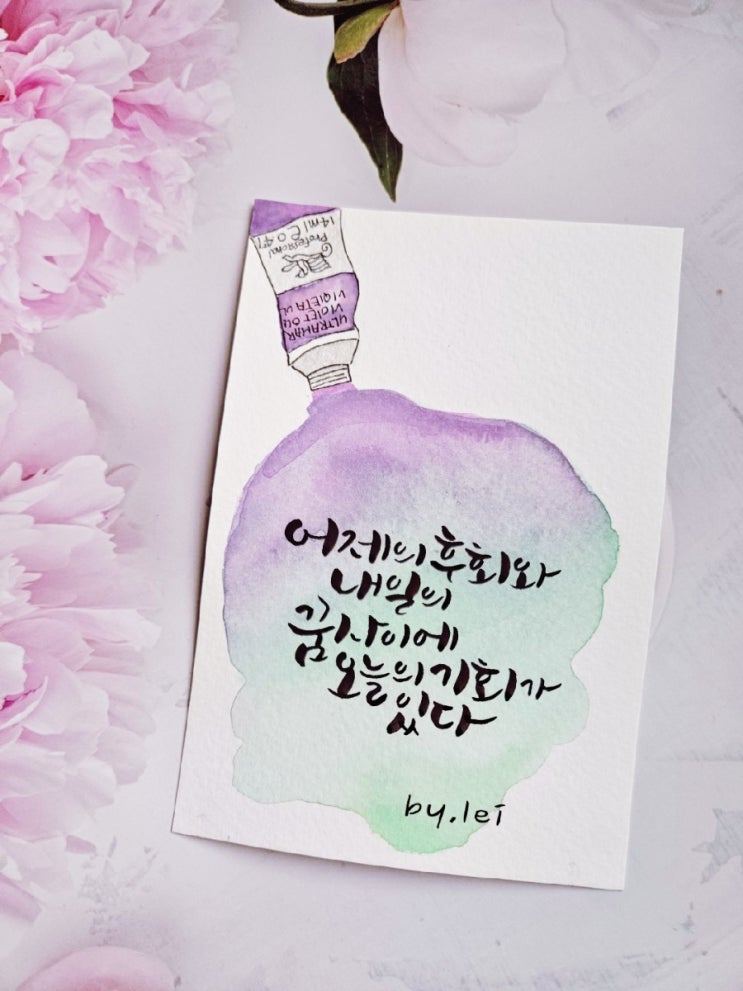 14ml
Professional
ULTRAMAR
VIOLET
VIOLETA UL
어제의 후회와
내일의
꿈 사이에
오늘의 기회가
있다
by.lei